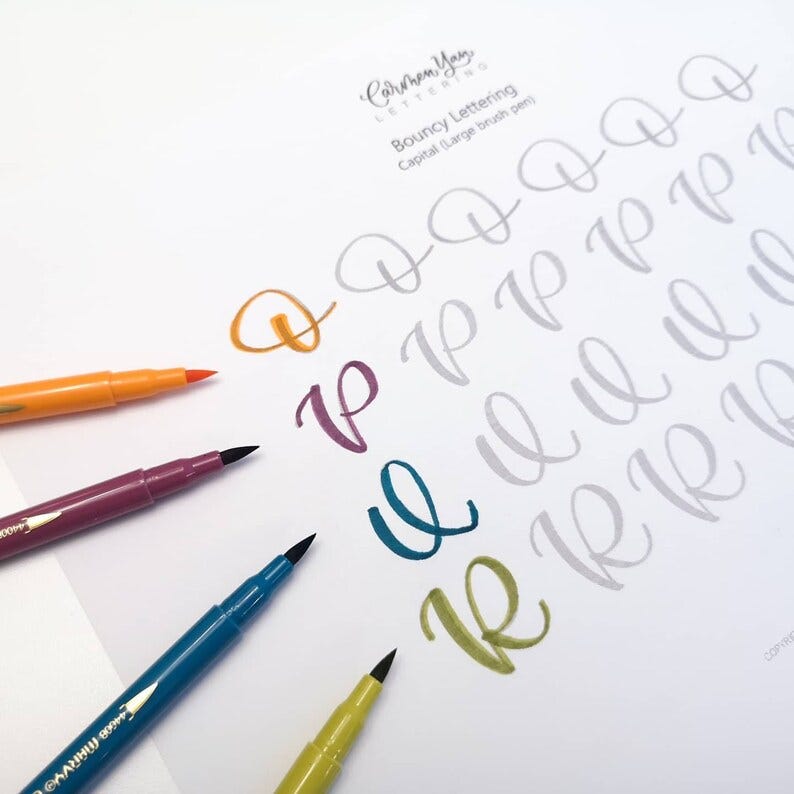 Carmen Yan
LETTERING
Bouncy Lettering
Capital (Large brush pen)
O O O O O O
P P P P P P
Q Q Q Q Q
R R R R
4400B MARVY®